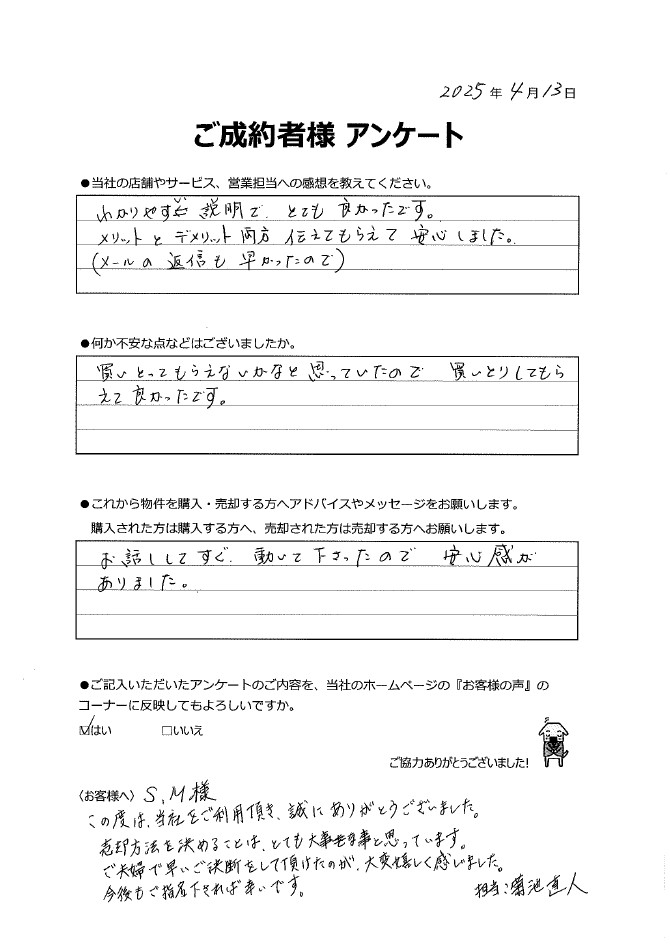 2025年4月13日
ご成約者様 アンケート
●当社の店舗やサービス、営業担当への感想を教えてください。
わかりやすい説明で、とても良かったです。
メリットとデメリット両方伝えてもらえて安心しました。
(メールの返信も早かったので)
●何か不安な点などはございましたか。
買いとってもらえないかなと思っていたので 買いとりしてもら
えて良かったです。
●これから物件を購入・売却する方へアドバイスやメッセージをお願いします。
購入された方は購入する方へ、売却された方は売却する方へお願いします。
お話ししてすぐ、動いて下さったので 安心感が
ありました。
●ご記入いただいたアンケートのご内容を、当社のホームページの『お客様の声』の
コーナーに反映してもよろしいですか。
☑はい □いいえ
ご協力ありがとうございました!
〈お客様へ〉S.M様
この度は、当社をご利用頂き、誠にありがとうございました。
売却方法を決めることは、とても大事な事と思っています。
ご夫婦で早いご決断をして頂けたのが、大変嬉しく感いました。
今後もご指名下されば幸いです。
担当:菊池直人